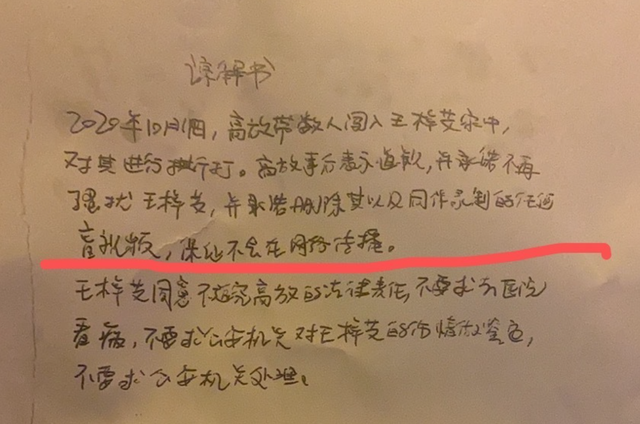 谅解书
2020年10月1日，高放带数人闯入王梓艾家中，
对其进行殴打。高放事后表示道歉，并承诺不再
骚扰王梓艾，并承诺删除其以及同伴录制的任何
音视频，保证不会在网络传播。
王梓艾同意不追究高放的法律责任，不要求去医院
看病，不要求公安机关对王梓艾的伤情做鉴定，
不要求公安机关处理。